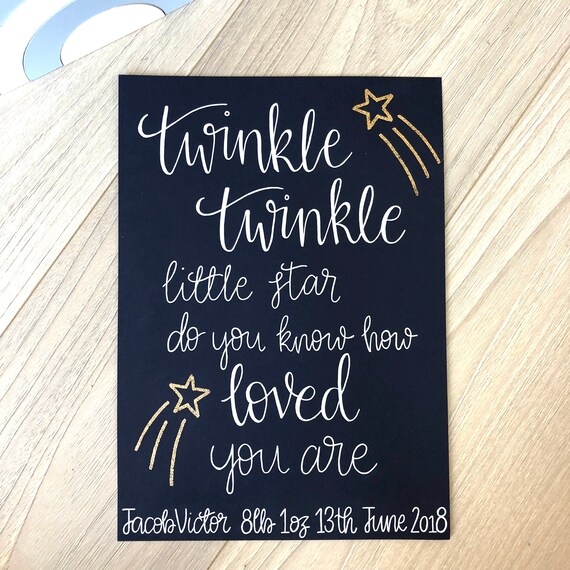 twinkle
twinkle
little star
do you know how
loved
you are
Jacob Victor 8lb 1oz 13th June 2018